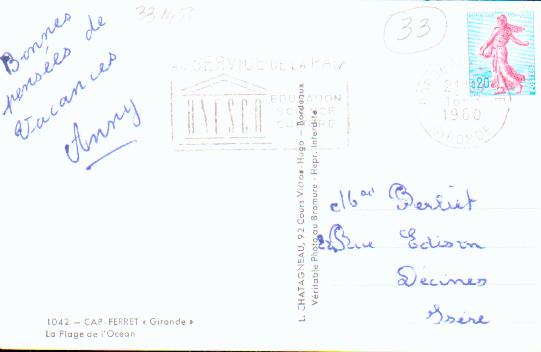 33
Bonnes
pensées de
Vacances
Anny
AU SERVICE DE LA PAIX
UNESCO
EDUCATION
SCIENCE
CULTURE
0,20
21
1960
GIRONDE
L. CHATAGNEAU, 92 Cours Victor-Hugo — Bordeaux
Véritable Photo au Bromure - Repr. Interdite
Berliet
Rue Edison
Décines
Isère
1042 — CAP-FERRET « Gironde »
La Plage de l'Océan